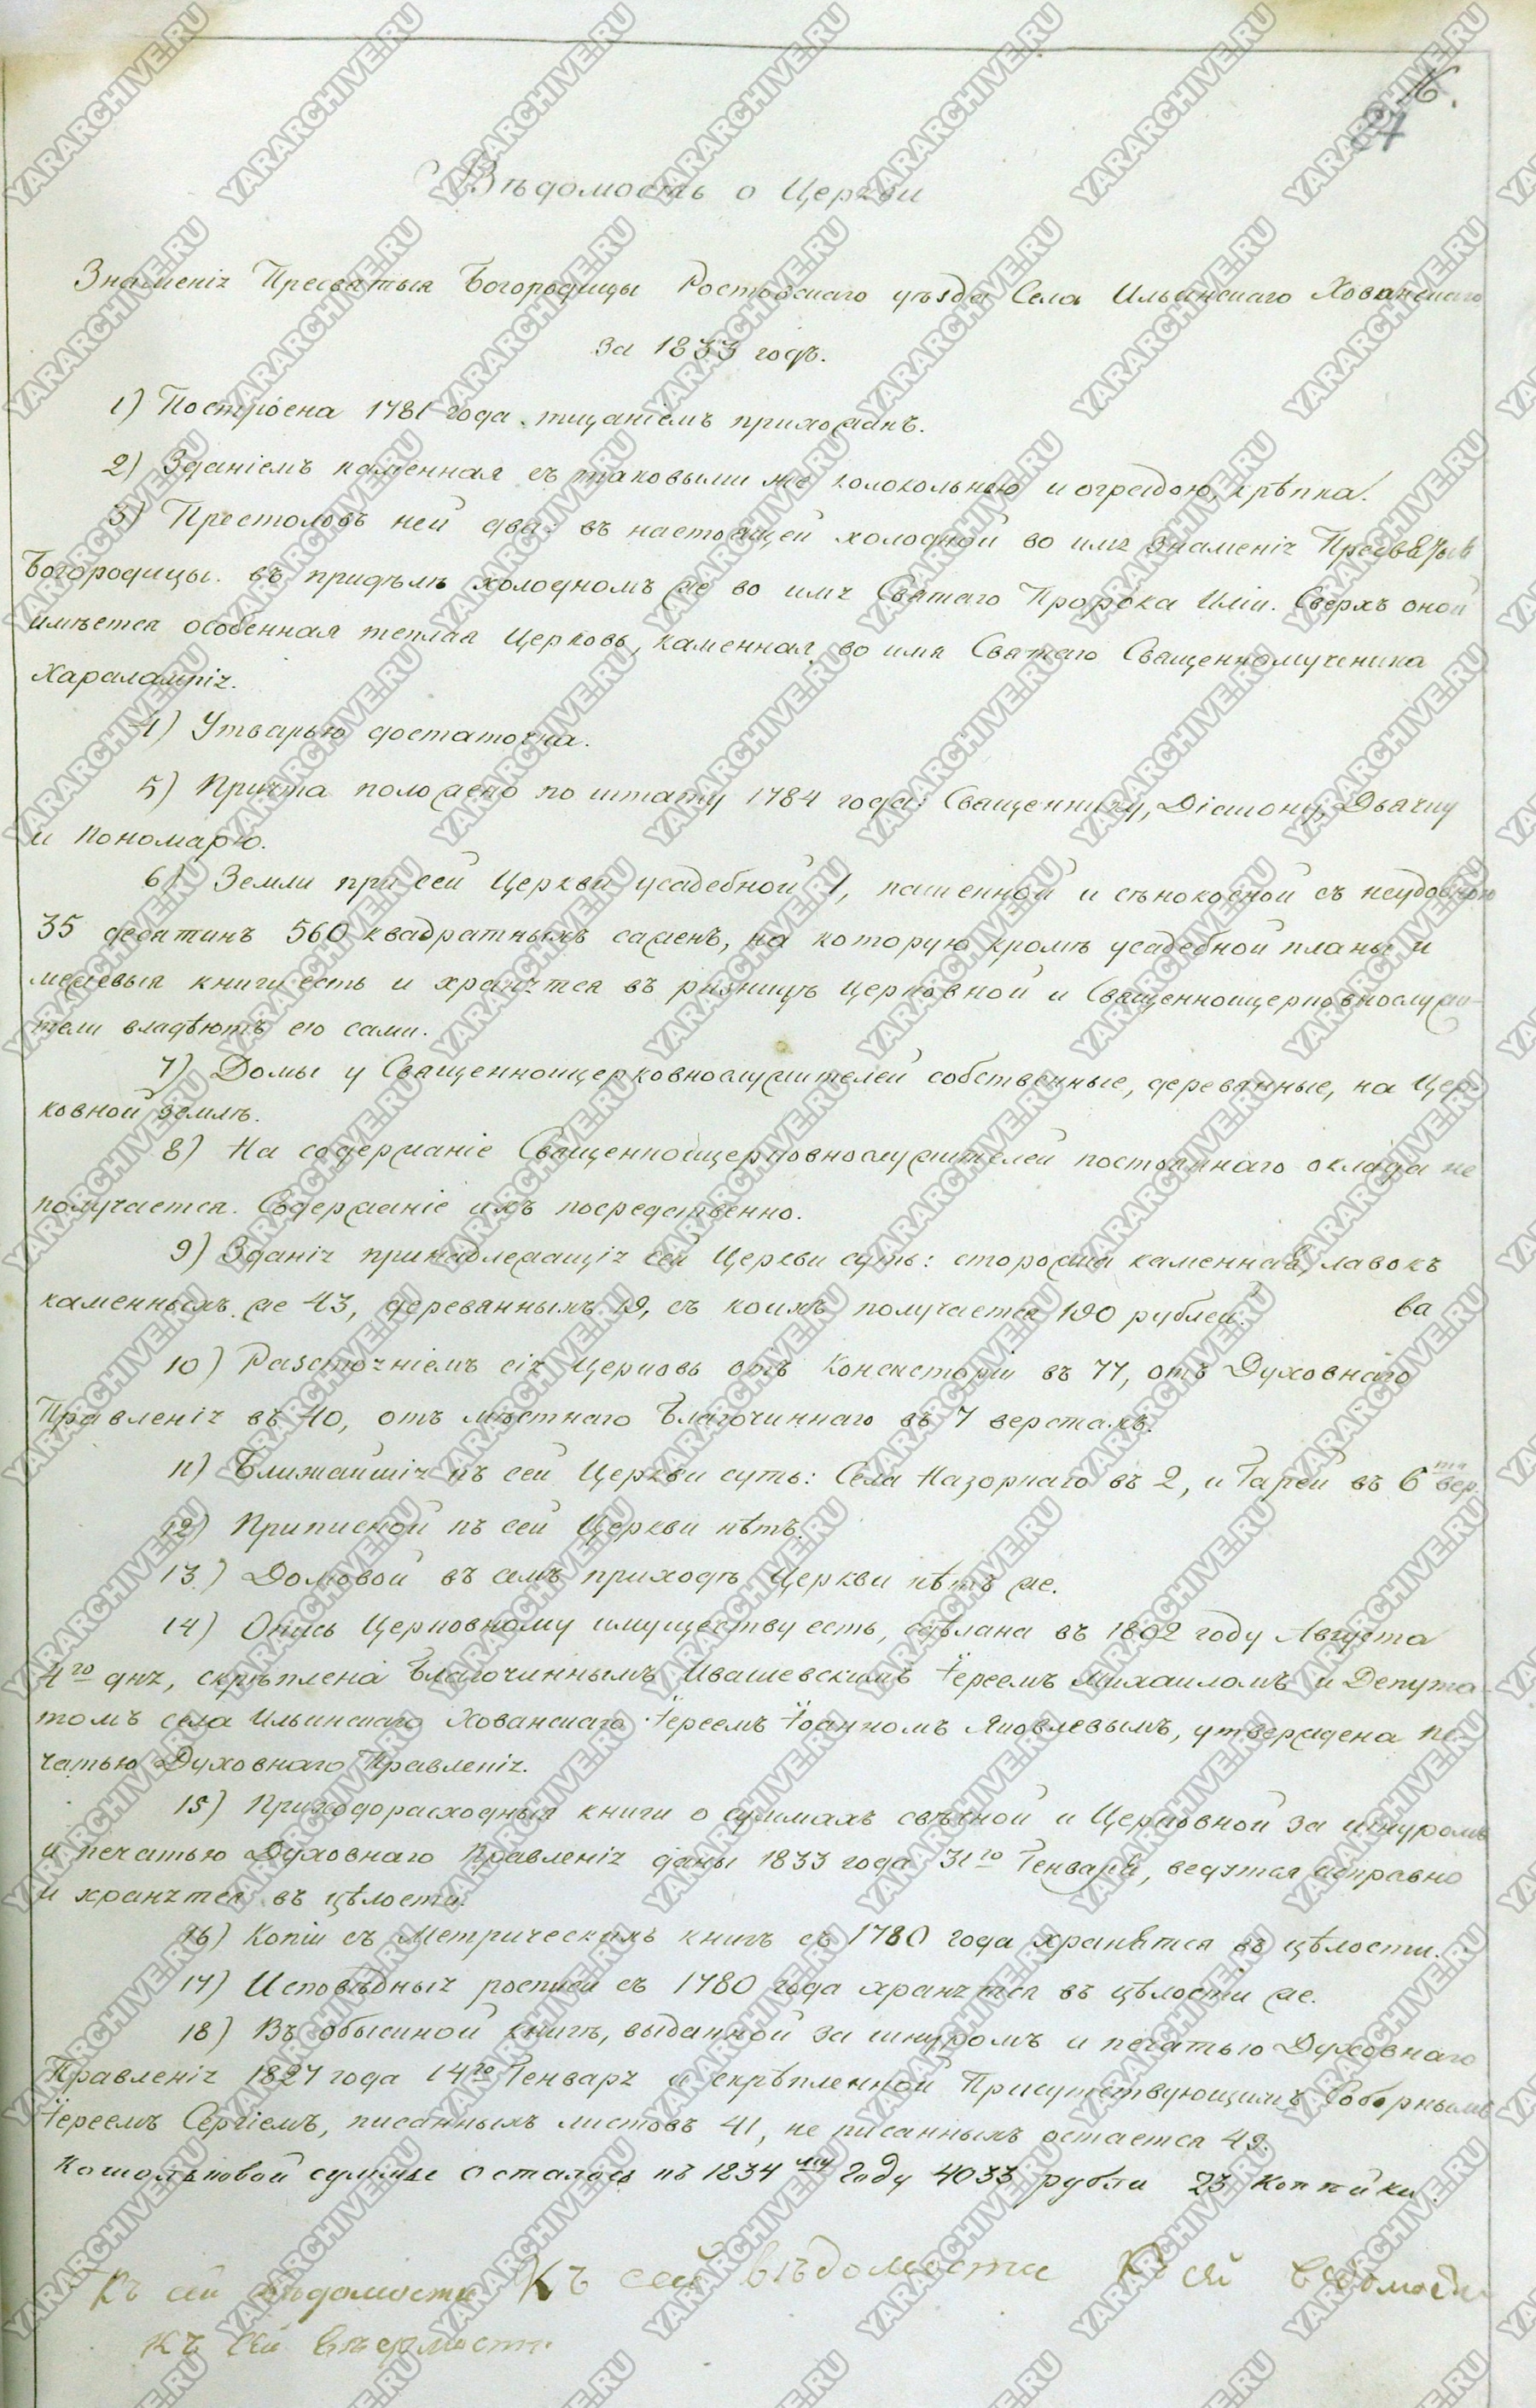 16.
27
Вѣдомость о Церкви
Знаменіѧ Пресвятыя Богородицы Ростовскаго уѣзда Села Ильинскаго Хованскаго
за 1833 годъ.
1) Построена 1781 года тщаніемъ прихожанъ.
2) Зданіемъ каменная съ таковыми же колокольнею и оградою, крѣпка.
3) Престоловъ ней два: въ настоящей холодной во имѧ Знаменіѧ Пресвятыя
Богородицы. въ придѣлѣ холодномъ же во имѧ Святаго Пророка Иліи. Сверхъ оной
имѣется особенная теплая Церковь, каменная, во имя Святаго Священномученика
Харалампіѧ.
4) Утварью достаточна.
5) Причта положено по штату 1784 года: Священнику, Діакону, Дьячку
и Пономарю.
6) Земли при сей Церкви усадебной 1, пашенной и сѣнокосной съ неудобною
35 десятинъ 560 квадратныхъ саженъ, на которую кромѣ усадебной планы и
межевыя книги есть и хранѧтся въ ризницѣ церковной и Священноицерковнослужи-
тели владѣютъ ею сами.
7) Домы у Священноицерковнослужителей собственные, деревянные, на Цер-
ковной землѣ.
8) На содержаніе Священноицерковнослужителей постояннаго оклада не
получается. Содержаніе ихъ посредственно.
9) Зданіѧ принадлежащіѧ сей Церкви суть: сторожка каменная, лавокъ
каменныхъ же 43, деревянныхъ 19, съ коихъ получается 190 рублей. ва
10) Разстоѧніемъ сіѧ Церковь отъ Консисторіи въ 77, отъ Духовнаго
Правленіѧ въ 40, отъ мѣстнаго Благочиннаго въ 7 верстахъ.
11) Ближайшіѧ къ сей Церкви суть: Села Назорнаго въ 2, и Гарей въ 6 ти вер.
12) Приписной къ сей Церкви нѣтъ.
13) Домовой въ семъ приходѣ Церкви нѣтъ же.
14) Опись Церковному имуществу есть, сдѣлана въ 1802 году Августа
4го днѧ, скрѣплена Благочиннымъ Ивашевскимъ Іереемъ Михаиломъ и Депута-
томъ села Ильинскаго Хованскаго Іереемъ Іоанномъ Яковлевымъ, утверждена пе-
чатью Духовнаго Правленіѧ.
15) Приходорасходныя книги о суммахъ свѣчной и Церковной за шнуромъ
и печатью Духовнаго Правленіѧ даны 1833 года 31го Генваря, ведутся исправно
и хранѧтся въ цѣлости.
16) Копіи съ Метрическихъ книгъ съ 1780 года хранятся въ цѣлости.
17) Исповѣдныѧ росписи съ 1780 года хранѧтся въ цѣлости же.
18) Въ обыскной книгѣ, выданной за шнуромъ и печатью Духовнаго
Правленіѧ 1827 года 14го Генварѧ и скрѣпленной Присутствующимъ Соборнымъ
Іереемъ Сергіемъ, писанныхъ листовъ 41, не писанныхъ остается 49.
Кошольковой суммы осталось къ 1834 му Году 4033 рубли 23 Коппйки.
Къ сей вѣдомости Къ сей вѣдомости К сей ведомости
Къ сей вѣдомости